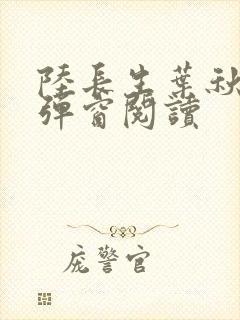 陸長生葉秋
彈窗閱讀
庞警官